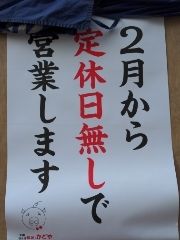 2月から
定休日無しで
営業します
かどや